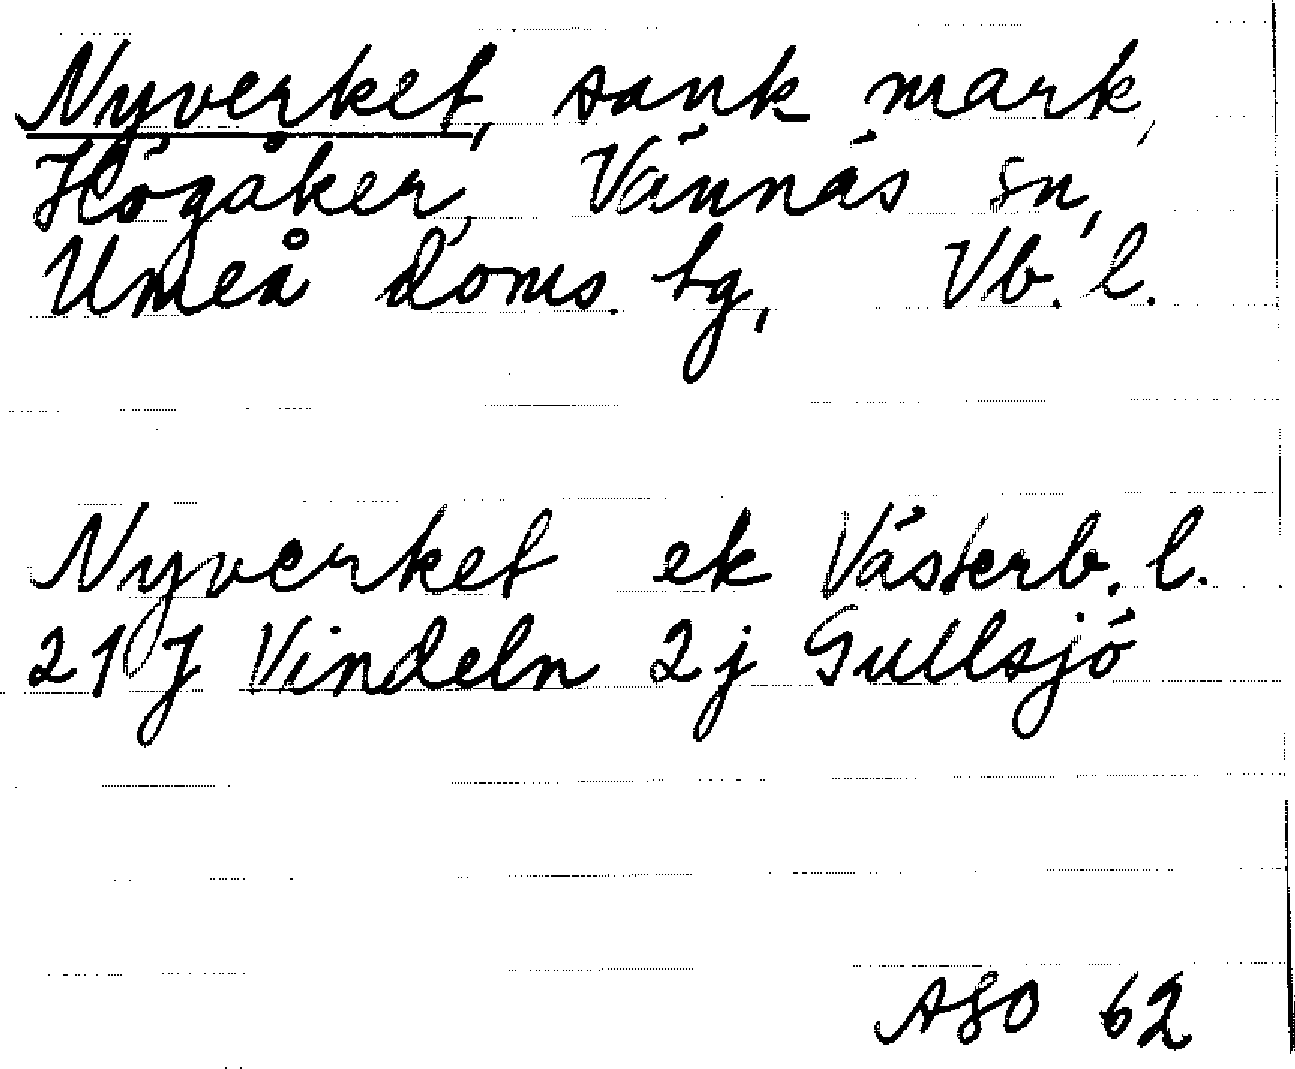 Nyverket, sank mark,
Högåker, Vännäs sn,
Umeå doms. tg, Vb. l.
Nyverket ek Västerb. l.
21 J Vindeln 2j Gullsjö
ASO 62